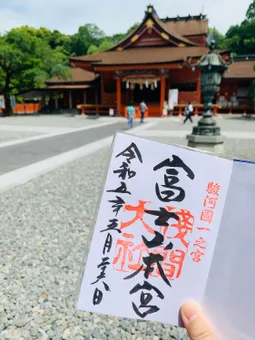 駿河國一之宮
富士山本宮
淺間
大社
令和五年五月二六日